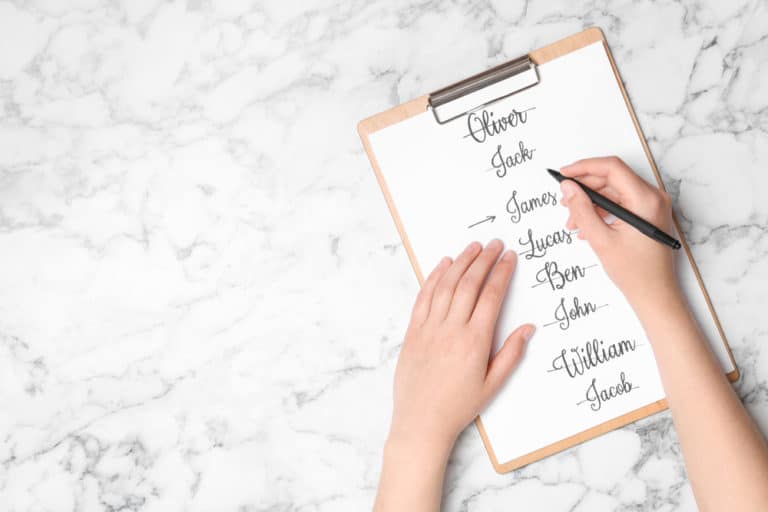 Oliver
Jack
James
Lucas
Ben
John
William
Jacob